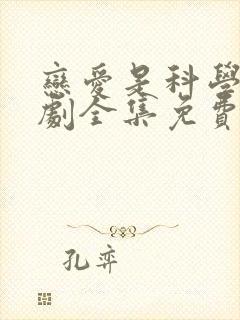 戀愛是科學
劇全集免費
孔弈